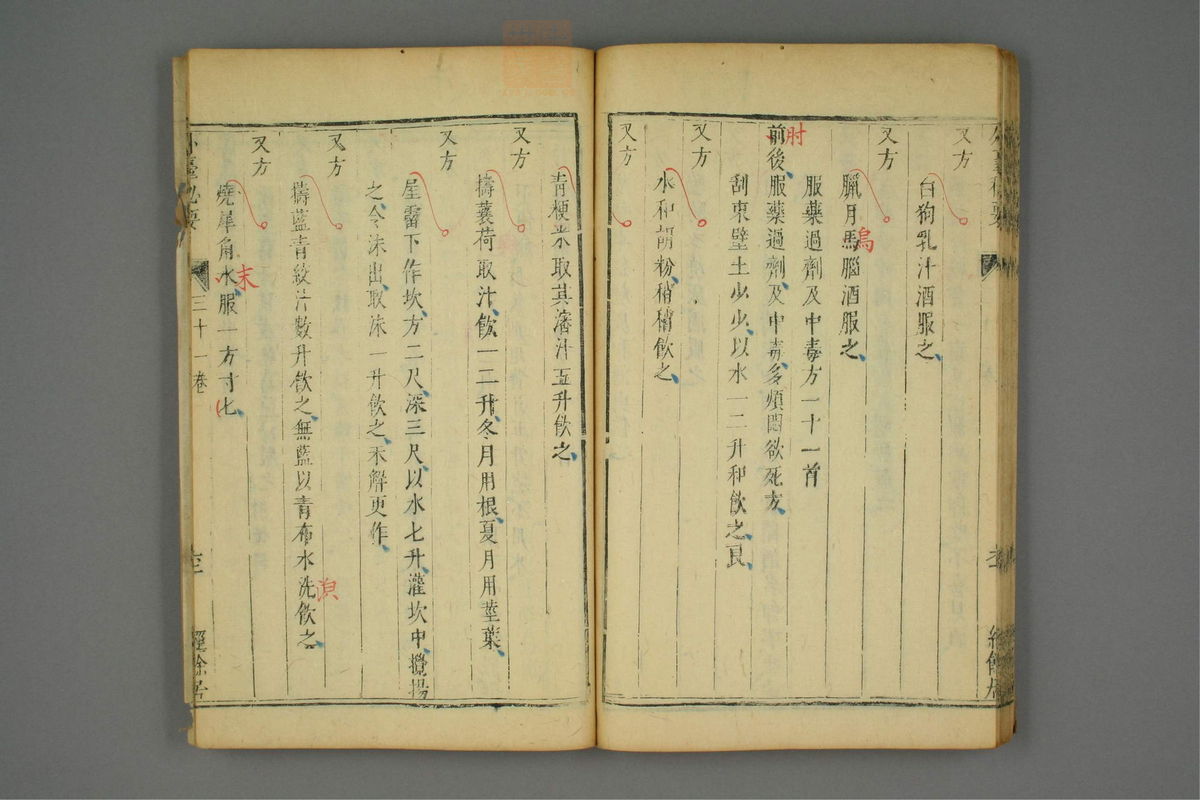 又方
白狗乳汁酒服之
又方
臘月馬腦酒服之
烏
服藥過劑及中毒方一十一首
肘
前後服藥過劑及中毒多煩悶欲死方
刮東壁土少少以水一二升和飲之良
又方
水和胡粉稍稍飲之
又方
青粳米取其瀋汁五升飲之
又方
擣蘘荷取汁飲一二升冬月用根夏月用莖葉
又方
屋霤下作坎方二尺深三尺以水七升灌坎中攪揚
之令沫出取沫一升飲之未解更作
又方
擣藍青絞汁數升飲之無藍以青布水洗飲之
又方
燒犀角水服一方寸匕
末
外臺祕要
三十一卷
經餘居